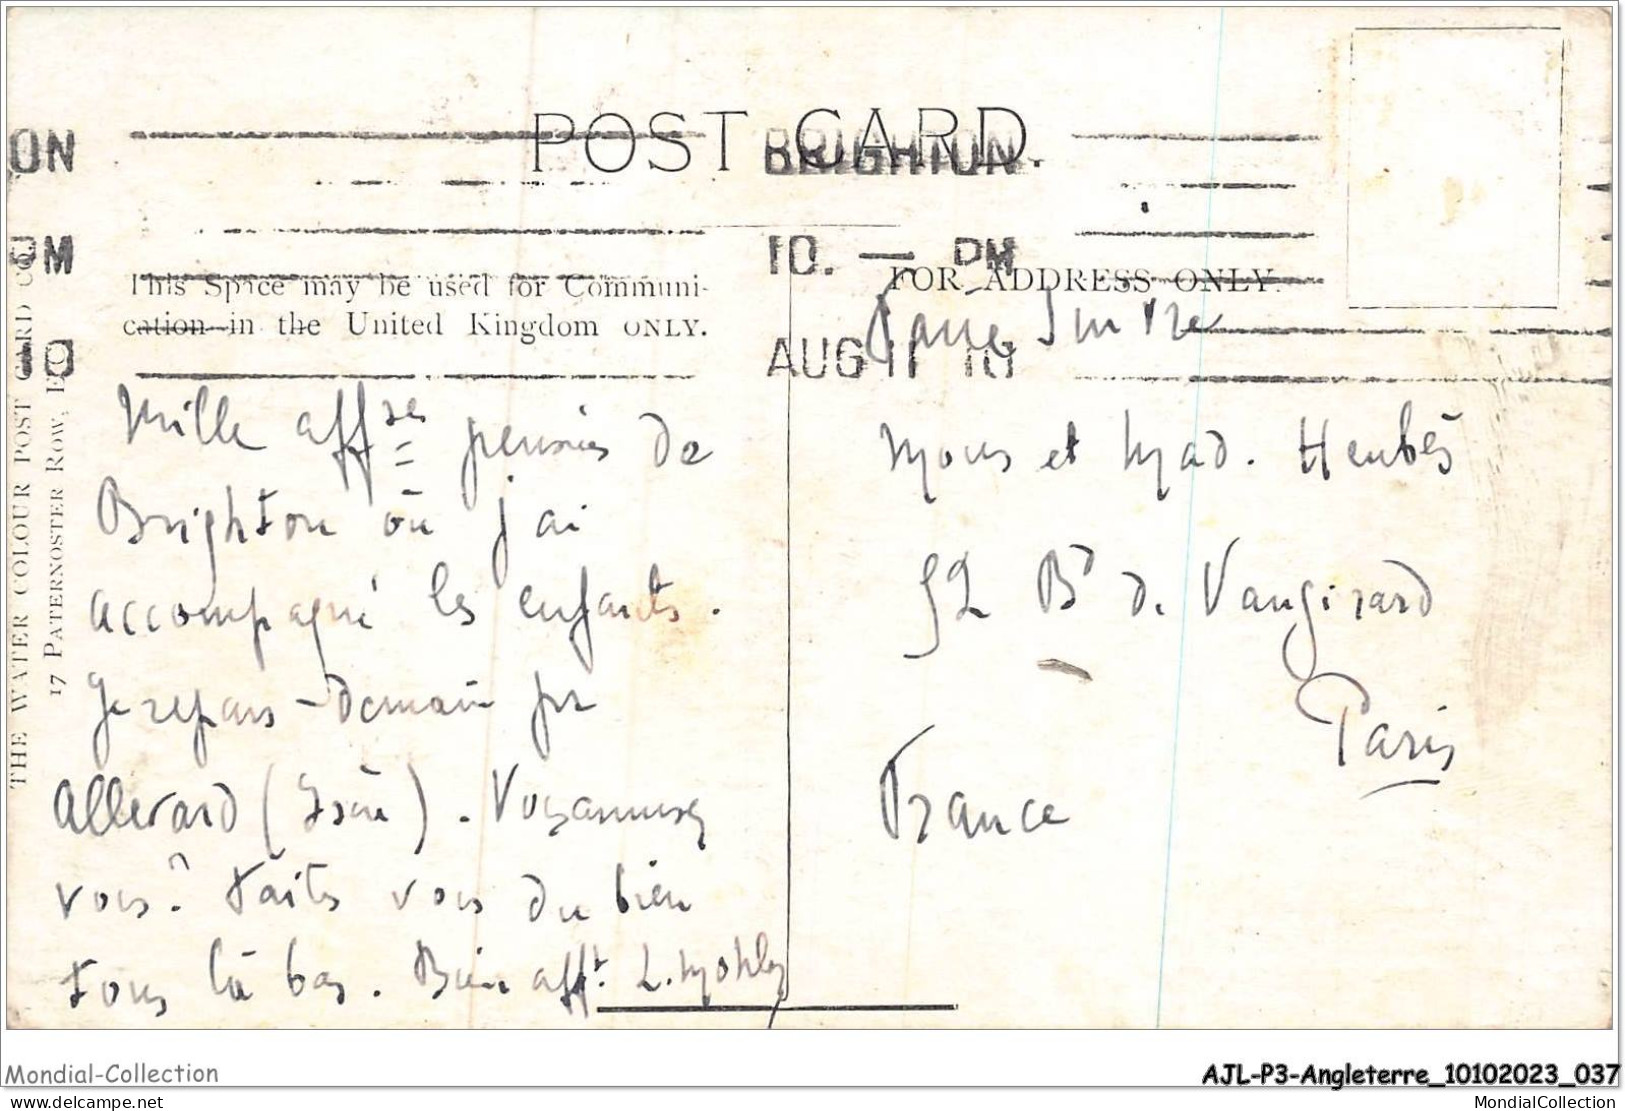 POST CARD.
BRIGHTON
10. — PM
AUG 11 10
ON
PM
10
This Space may be used for Communi-
cation in the United Kingdom ONLY.
FOR ADDRESS ONLY.
THE WATER COLOUR POST CARD CO
17 PATERNOSTER ROW, E
Mille affses pensées de
Brighton où j'ai
accompagné les enfants.
Je repars demain pr
Allevard (Isère). Vous amusez
vous? Faites vous du bien
tous là bas. Bien afft. L. Mohler
Faire Suivre
Mons et Mad. Heubès
52 Bd de Vaugirard
Paris
France
Mondial-Collection
AJL-P3-Angleterre_10102023_037
www.delcampe.net
MondialCollection